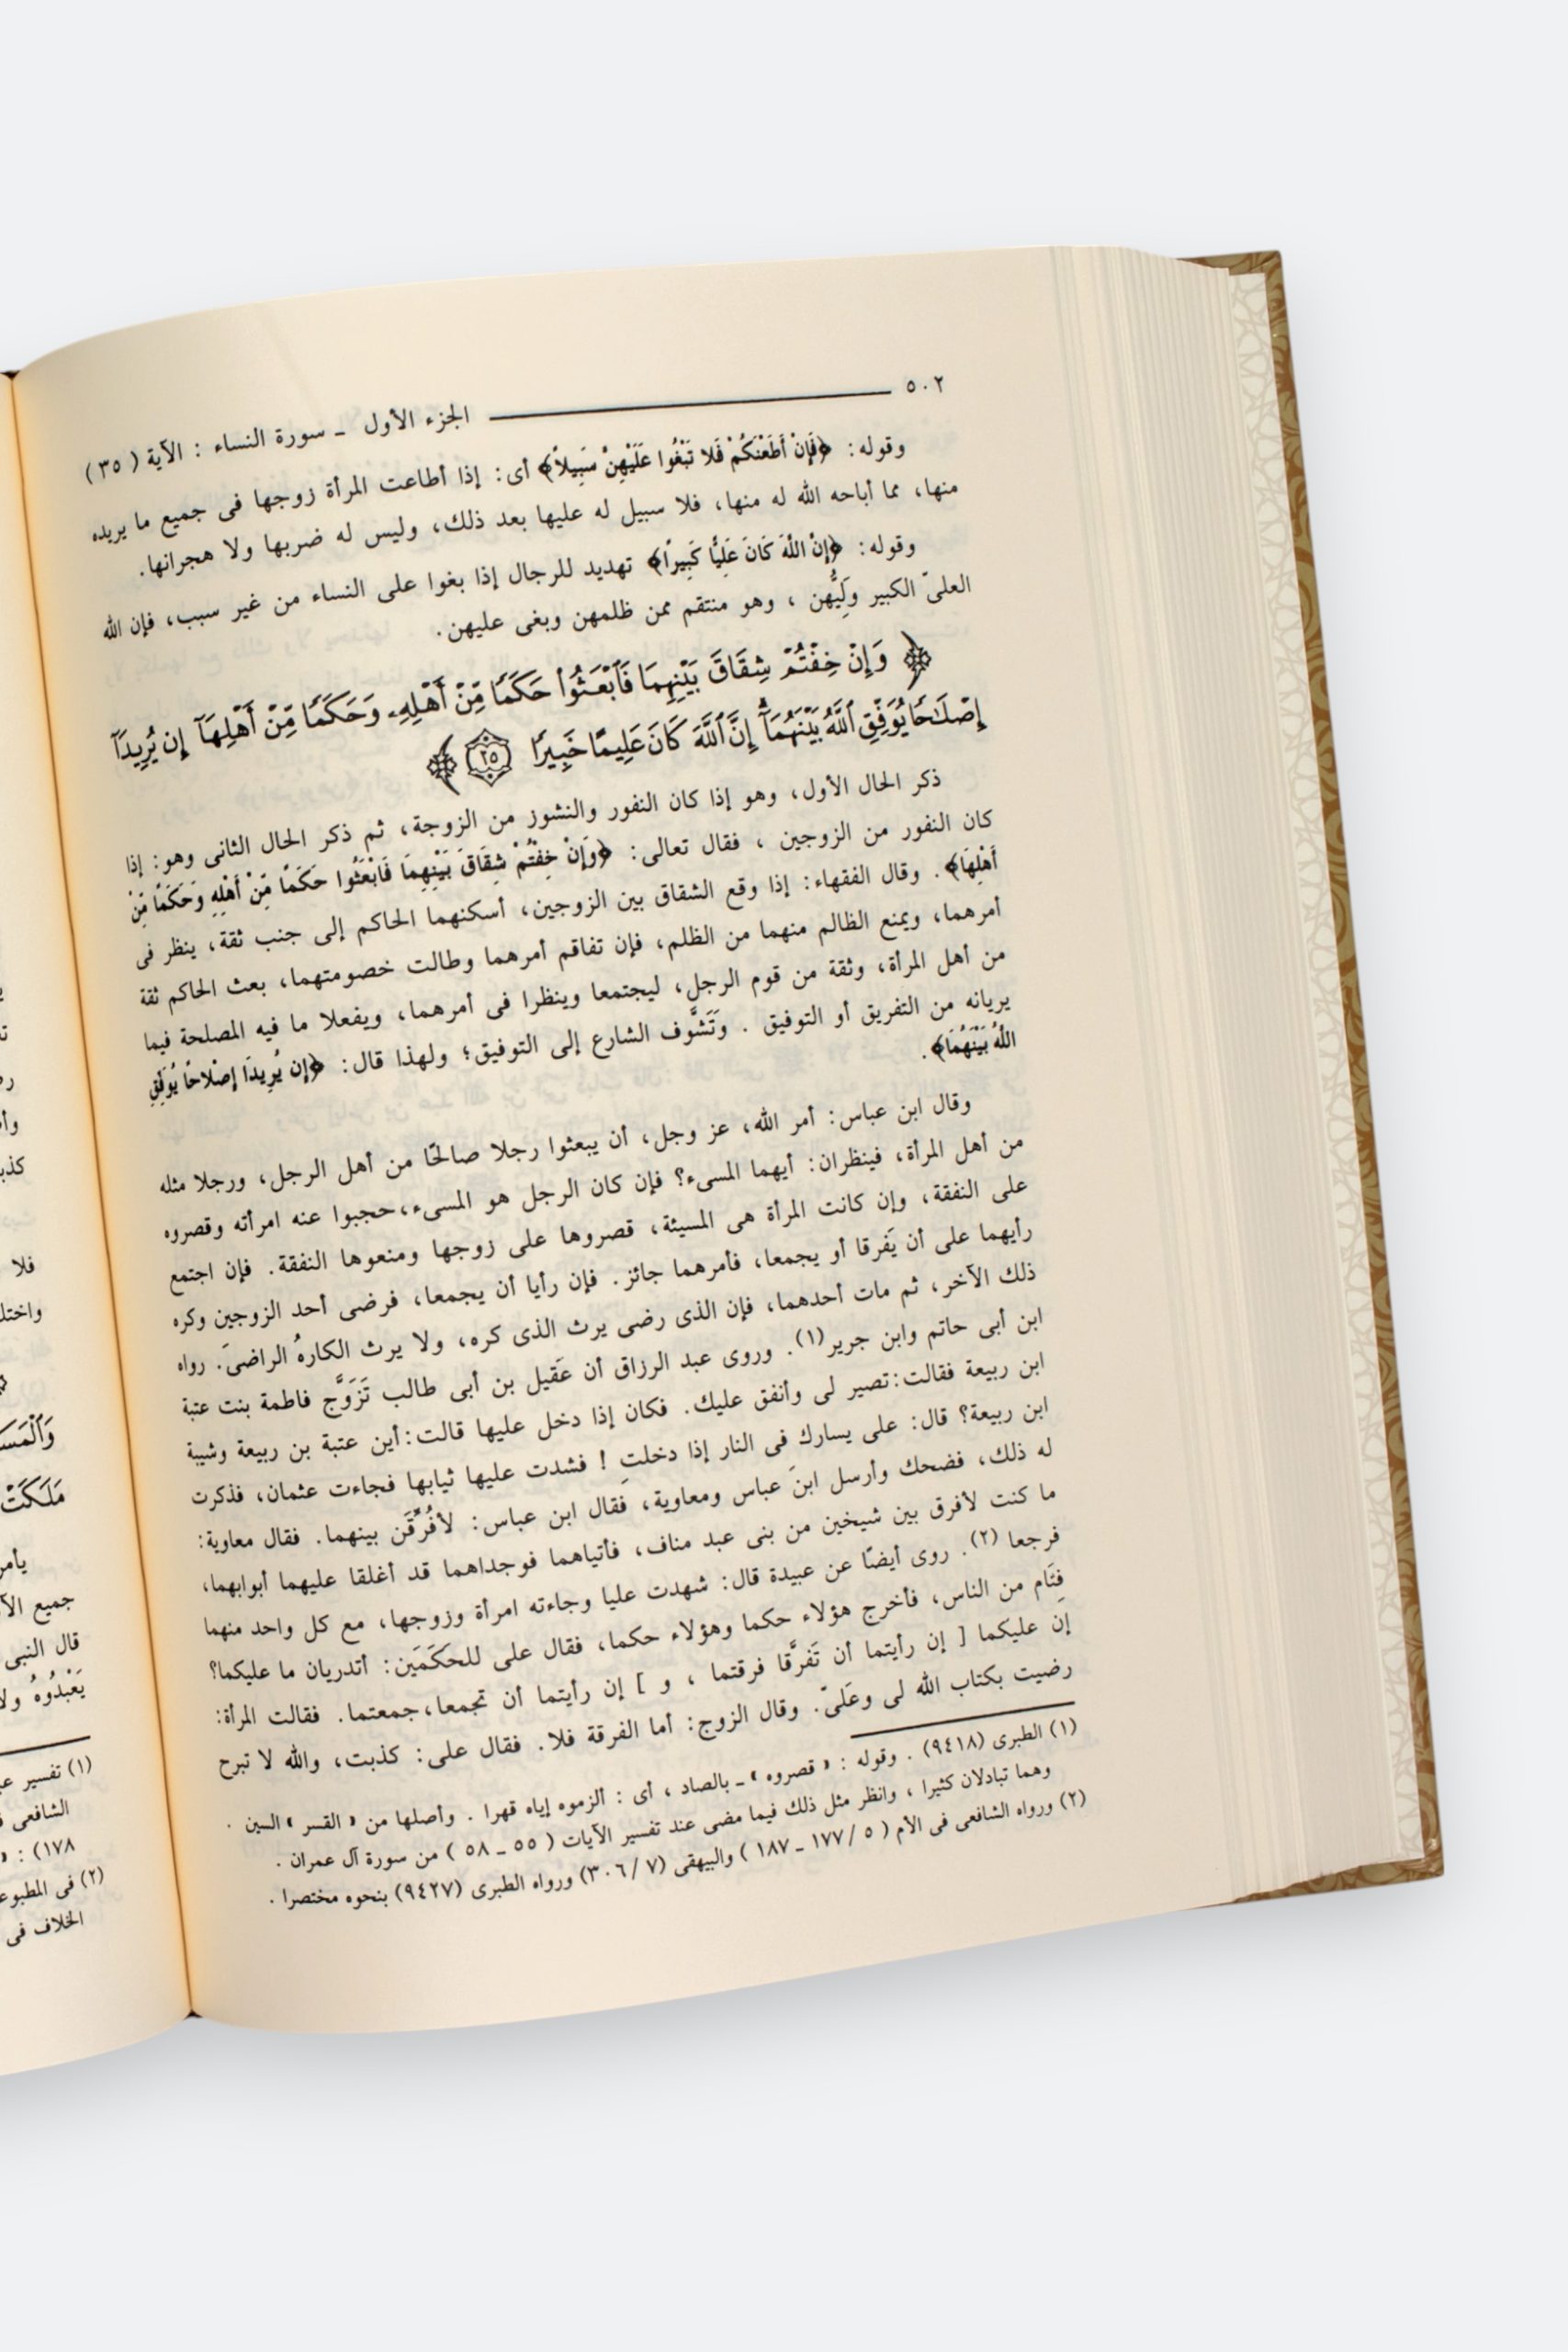 ٥٠٢ الجزء الأول ـ سورة النساء : الآية ( ٣٥ )
وقوله: ﴿فَإِنْ أَطَعْنَكُمْ فَلا تَبْغُوا عَلَيْهِنَّ سَبِيلاً﴾ أى: إذا أطاعت المرأة زوجها فى جميع ما يريده
منها، مما أباحه الله له منها، فلا سبيل له عليها بعد ذلك، وليس له ضربها ولا هجرانها.
وقوله: ﴿إِنَّ اللَّهَ كَانَ عَلِيًّا كَبِيرًا﴾ تهديد للرجال إذا بغوا على النساء من غير سبب، فإن الله
العلىّ الكبير وَلِيُّهن ، وهو منتقم ممن ظلمهن وبغى عليهن.
﴿ وَإِنْ خِفْتُمْ شِقَاقَ بَيْنِهِمَا فَابْعَثُوا۟ حَكَمًا مِّنْ أَهْلِهِۦ وَحَكَمًا مِّنْ أَهْلِهَآ إِن يُرِيدَآ
إِصْلَٰحًا يُوَفِّقِ ٱللَّهُ بَيْنَهُمَآ إِنَّ ٱللَّهَ كَانَ عَلِيمًا خَبِيرًا ٣٥ ﴾
ذكر الحال الأول، وهو إذا كان النفور والنشوز من الزوجة، ثم ذكر الحال الثانى وهو: إذا
كان النفور من الزوجين ، فقال تعالى: ﴿وَإِنْ خِفْتُمْ شِقَاقَ بَيْنِهِمَا فَابْعَثُوا حَكَمًا مِّنْ أَهْلِهِ وَحَكَمًا مِّنْ
أَهْلِهَا﴾. وقال الفقهاء: إذا وقع الشقاق بين الزوجين، أسكنهما الحاكم إلى جنب ثقة، ينظر فى
أمرهما، ويمنع الظالم منهما من الظلم، فإن تفاقم أمرهما وطالت خصومتهما، بعث الحاكم ثقة
من أهل المرأة، وثقة من قوم الرجل، ليجتمعا وينظرا فى أمرهما، ويفعلا ما فيه المصلحة فيما
يريانه من التفريق أو التوفيق . وَتَشَّوف الشارع إلى التوفيق؛ ولهذا قال: ﴿إِن يُرِيدَا إِصْلاحًا يُوَفِّقِ
اللَّهُ بَيْنَهُمَا﴾.
وقال ابن عباس: أمر الله، عز وجل، أن يبعثوا رجلا صالحًا من أهل الرجل، ورجلا مثله
من أهل المرأة، فينظران: أيهما المسىء؟ فإن كان الرجل هو المسىء،حجبوا عنه امرأته وقصروه
على النفقة، وإن كانت المرأة هى المسيئة، قصروها على زوجها ومنعوها النفقة. فإن اجتمع
رأيهما على أن يَفرقا أو يجمعا، فأمرهما جائز. فإن رأيا أن يجمعا، فرضى أحد الزوجين وكره
ذلك الآخر، ثم مات أحدهما، فإن الذى رضى يرث الذى كره، ولا يرث الكارهُ الراضىَ. رواه
ابن أبى حاتم وابن جرير(١). وروى عبد الرزاق أن عَقيل بن أبى طالب تَزَوَّج فاطمة بنت عتبة
ابن ربيعة فقالت:تصير لى وأنفق عليك. فكان إذا دخل عليها قالت:أين عتبة بن ربيعة وشيبة
ابن ربيعة؟ قال: على يسارك فى النار إذا دخلتِ ! فشدت عليها ثيابها فجاءت عثمان، فذكرت
له ذلك، فضحك وأرسل ابنَ عباس ومعاوية، فقال ابن عباس: لأفُرِّقَن بينهما. فقال معاوية:
ما كنت لأفرق بين شيخين من بنى عبد مناف، فأتياهما فوجداهما قد أغلقا عليهما أبوابهما،
فرجعا (٢). روى أيضًا عن عبيدة قال: شهدت عليا وجاءته امرأة وزوجها، مع كل واحد منهما
فِئَام من الناس، فأخرج هؤلاء حكما وهؤلاء حكما، فقال على للحَكَمَين: أتدريان ما عليكما؟
إن عليكما [ إن رأيتما أن تَفرَّقا فرقتما ، و ] إن رأيتما أن تجمعا،جمعتما. فقالت المرأة:
رضيت بكتاب الله لى وعَلىّ. وقال الزوج: أما الفرقة فلا. فقال على: كذبت، والله لا تبرح
(١) الطبرى (٩٤١٨) . وقوله : « قصروه » ـ بالصاد ، أى : ألزموه إياه قهرا . وأصلها من « القسر » السين .
وهما تبادلان كثيرا ، وانظر مثل ذلك فيما مضى عند تفسير الآيات ( ٥٥ ـ ٥٨ ) من سورة آل عمران .
(٢) ورواه الشافعى فى الأم ( ٥ /١٧٧ ـ ١٨٧ ) والبيهقى (٧ /٣٠٦) ورواه الطبرى (٩٤٢٧) بنحوه مختصرا .
فلا
مَلَكَتْ
جميع
قال النبى
يَعْبُدُوهُ
(١) تفسير
الشافعى
١٧٨) : «
(٢) فى
الخلاف فى